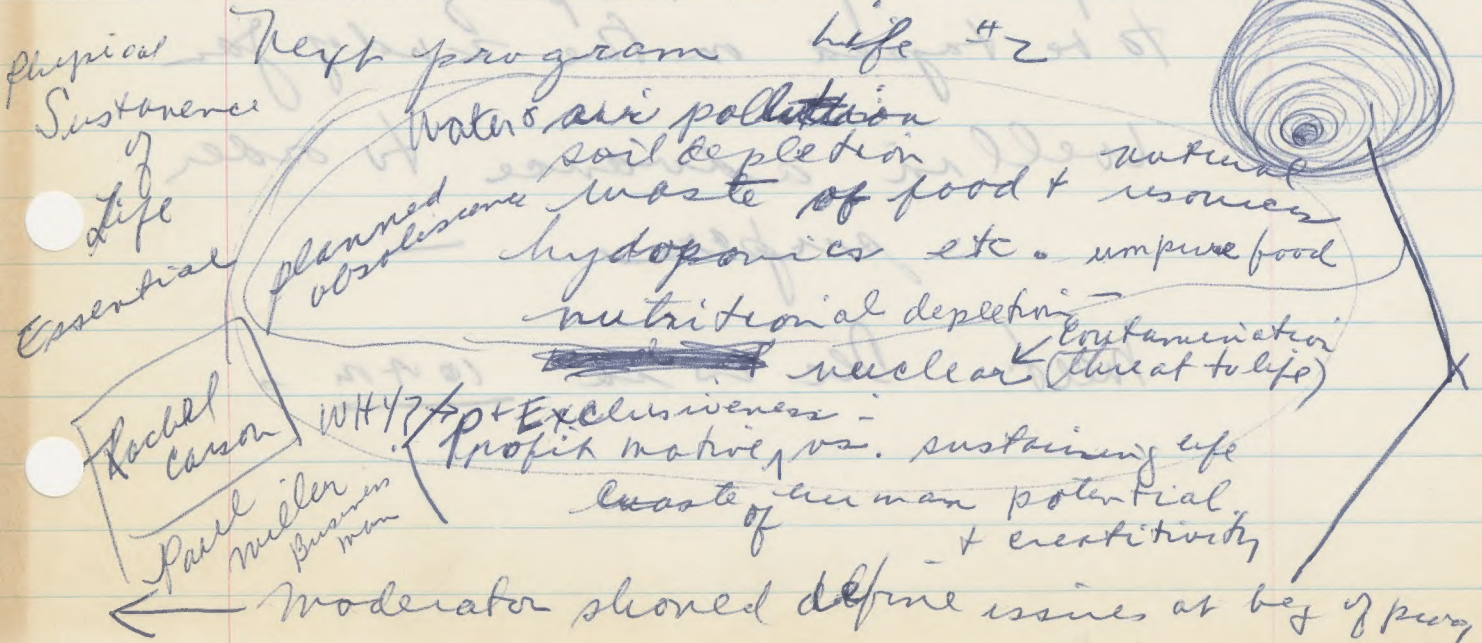 Physical
Sustanence
of
Life
Essential
Next program Life #2
Water & air pollution
soil depletion
planned
obsoliscence
waste of food + natural
resources
hydoponics etc. umpure food
nutritional depletion -
nuclear (Contamination
threat to life)
Rachel
Carson
Paul
Miller
Business
man
WHY? → P + Exclusiveness -
Profit motive, vs. sustaining life
waste of human potential.
+ creatitivity
← Moderator shoued define issues at beg of prog